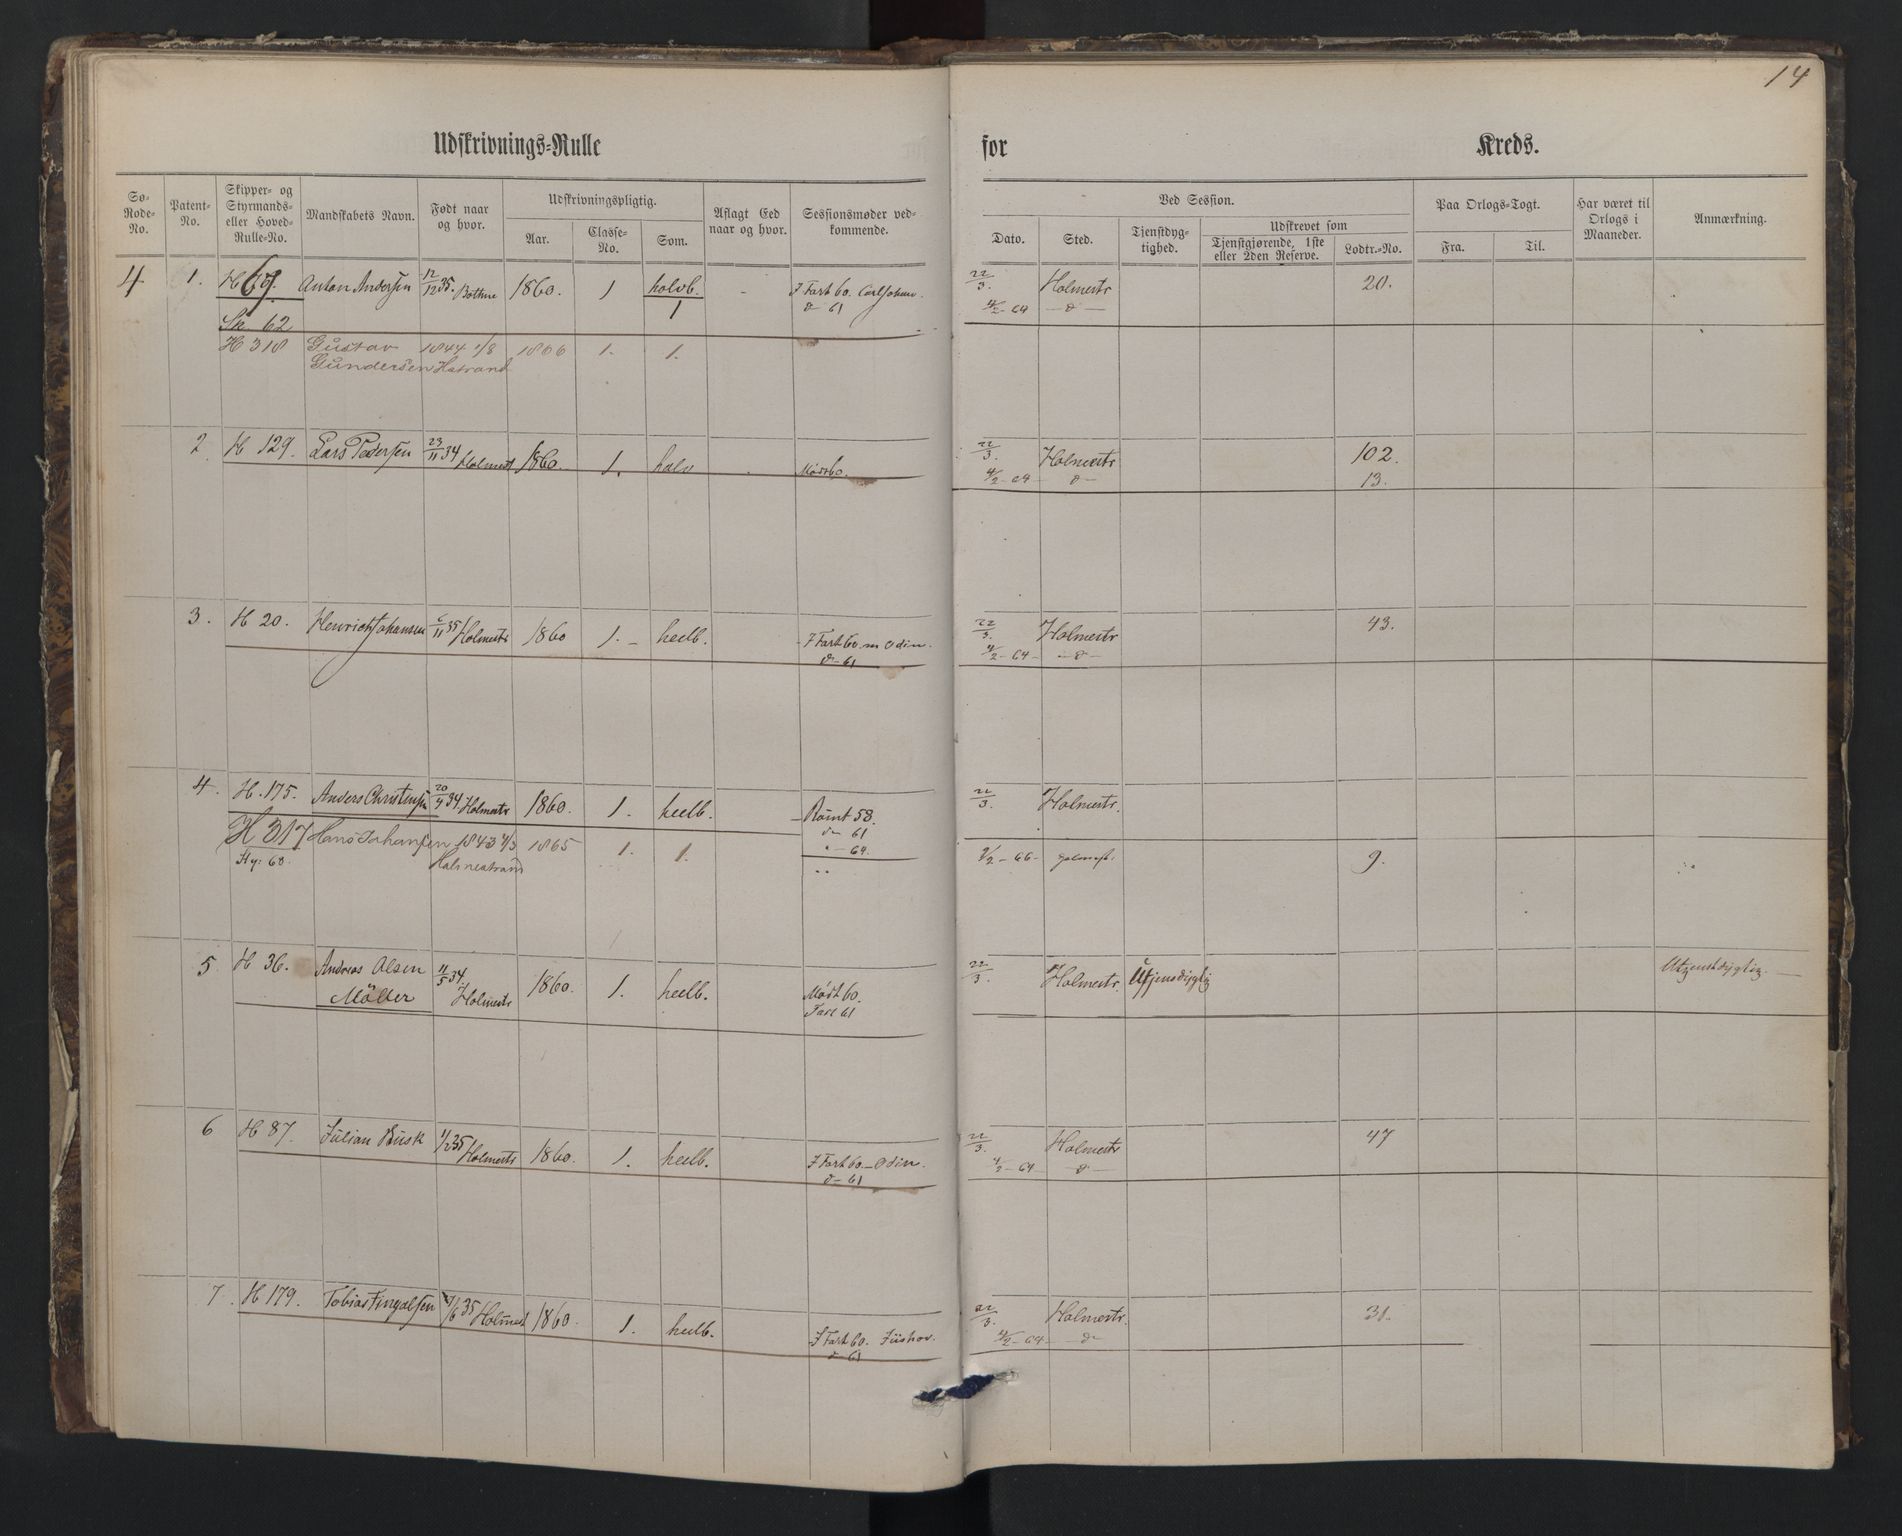 14
Udskrivnings-Rulle for Kreds.
Sø-Rode-No. Patent-No. Skipper- og Styrmands- eller Hoved-Rulle-No. Mandskabets Navn. Født naar og hvor. Udskrivningspligtig. Aar. Classe-No. Som. Aflagt Eed naar og hvor. Sessionsmøder vedkommende.
Ved Session. Dato. Sted. Tjenstdygtighed. Udskrevet som Tjenstgjørende, 1ste eller 2den Reserve. Lodtr.-No. Paa Orlogs-Togt. Fra. Til. Har været til Orlogs i Maaneder. Anmærkning.
4 1. H 67. Anton Andersen 12/12 35. Bottne 1860. 1 halvb. 1 - I Fart 60. Carl Johan. 22/3. Holmestr 20.
Sk. 62 d- 61 4/2-64 -d-
H 318 Gustav 1844 1/8 1866 1. 1.
Gundersen Hstrand
2. H 129. Lars Pedersen 23/11 34 Holmest 1860. 1. halv Mødt 60. 22/3. Holmestr 102.
4/2-64 -d- 13.
3. H 20. Henrich Johansen 6/11 35 Holmestr 1860 1. - heelb. I Fart 60. m Odin. 22/3. Holmestr 43.
d- 61 4/2-64- -d-
4. H. 175. Anders Christensen 20/9 34. Holmestr 1860. 1. heelb. Rømt 58. 22/3. Holmestr.
d- 61
H 317 Hans Johansen 1843 4/3 1865 1. 1. - 64. 2/2-66- 9.
Ny: 68. Holmestrand
5 H 36. Andreas Olsen 11/5 34. Holmestr 1860. 1. heelb. Mødt 60. 22/3. Holmestr. Utjensdygtig Utjenstdygtig.
Möller Fart 61
6 H 87. Julian Busk 11/2 35 Holmestr 1860. 1. heelb. I Fart 60 - Odin. 22/3. Holmestr 47
d- 61 4/2-64 -d-
7. H 179. Tobias Fingalsen /6 35 Holmest 1860. 1. heelb. I Fart 60. 22/3. Holmestr. 31.
d- 61 4/2-64- -d-